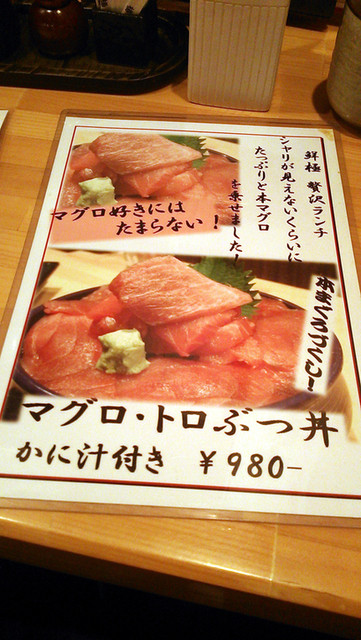 鮮極 贅沢ランチ
シャリが見えないくらいに
たっぷりと本マグロ
を乗せました!
マグロ好きには
たまらない!
本まぐろづくし!
マグロ・トロぶつ丼
かに汁付き ¥980-